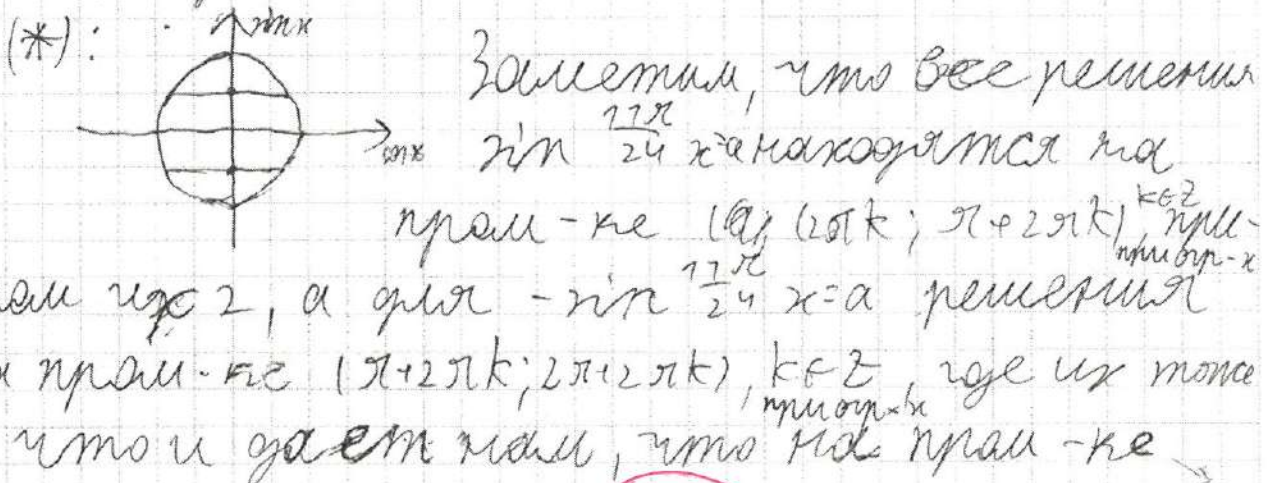 (*): sin x
Заметим, что все решения
cos x sin 11π/24 x=a находятся на
пром-ке (2πk; π+2πk), k∈Z при-
при огр-х
ом их 2, а для -sin 11π/24 x=a решения
пром-ке (π+2πk; 2π+2πk), k∈Z, где их тоже
при огр-х
что и дает нам, что на пром-ке